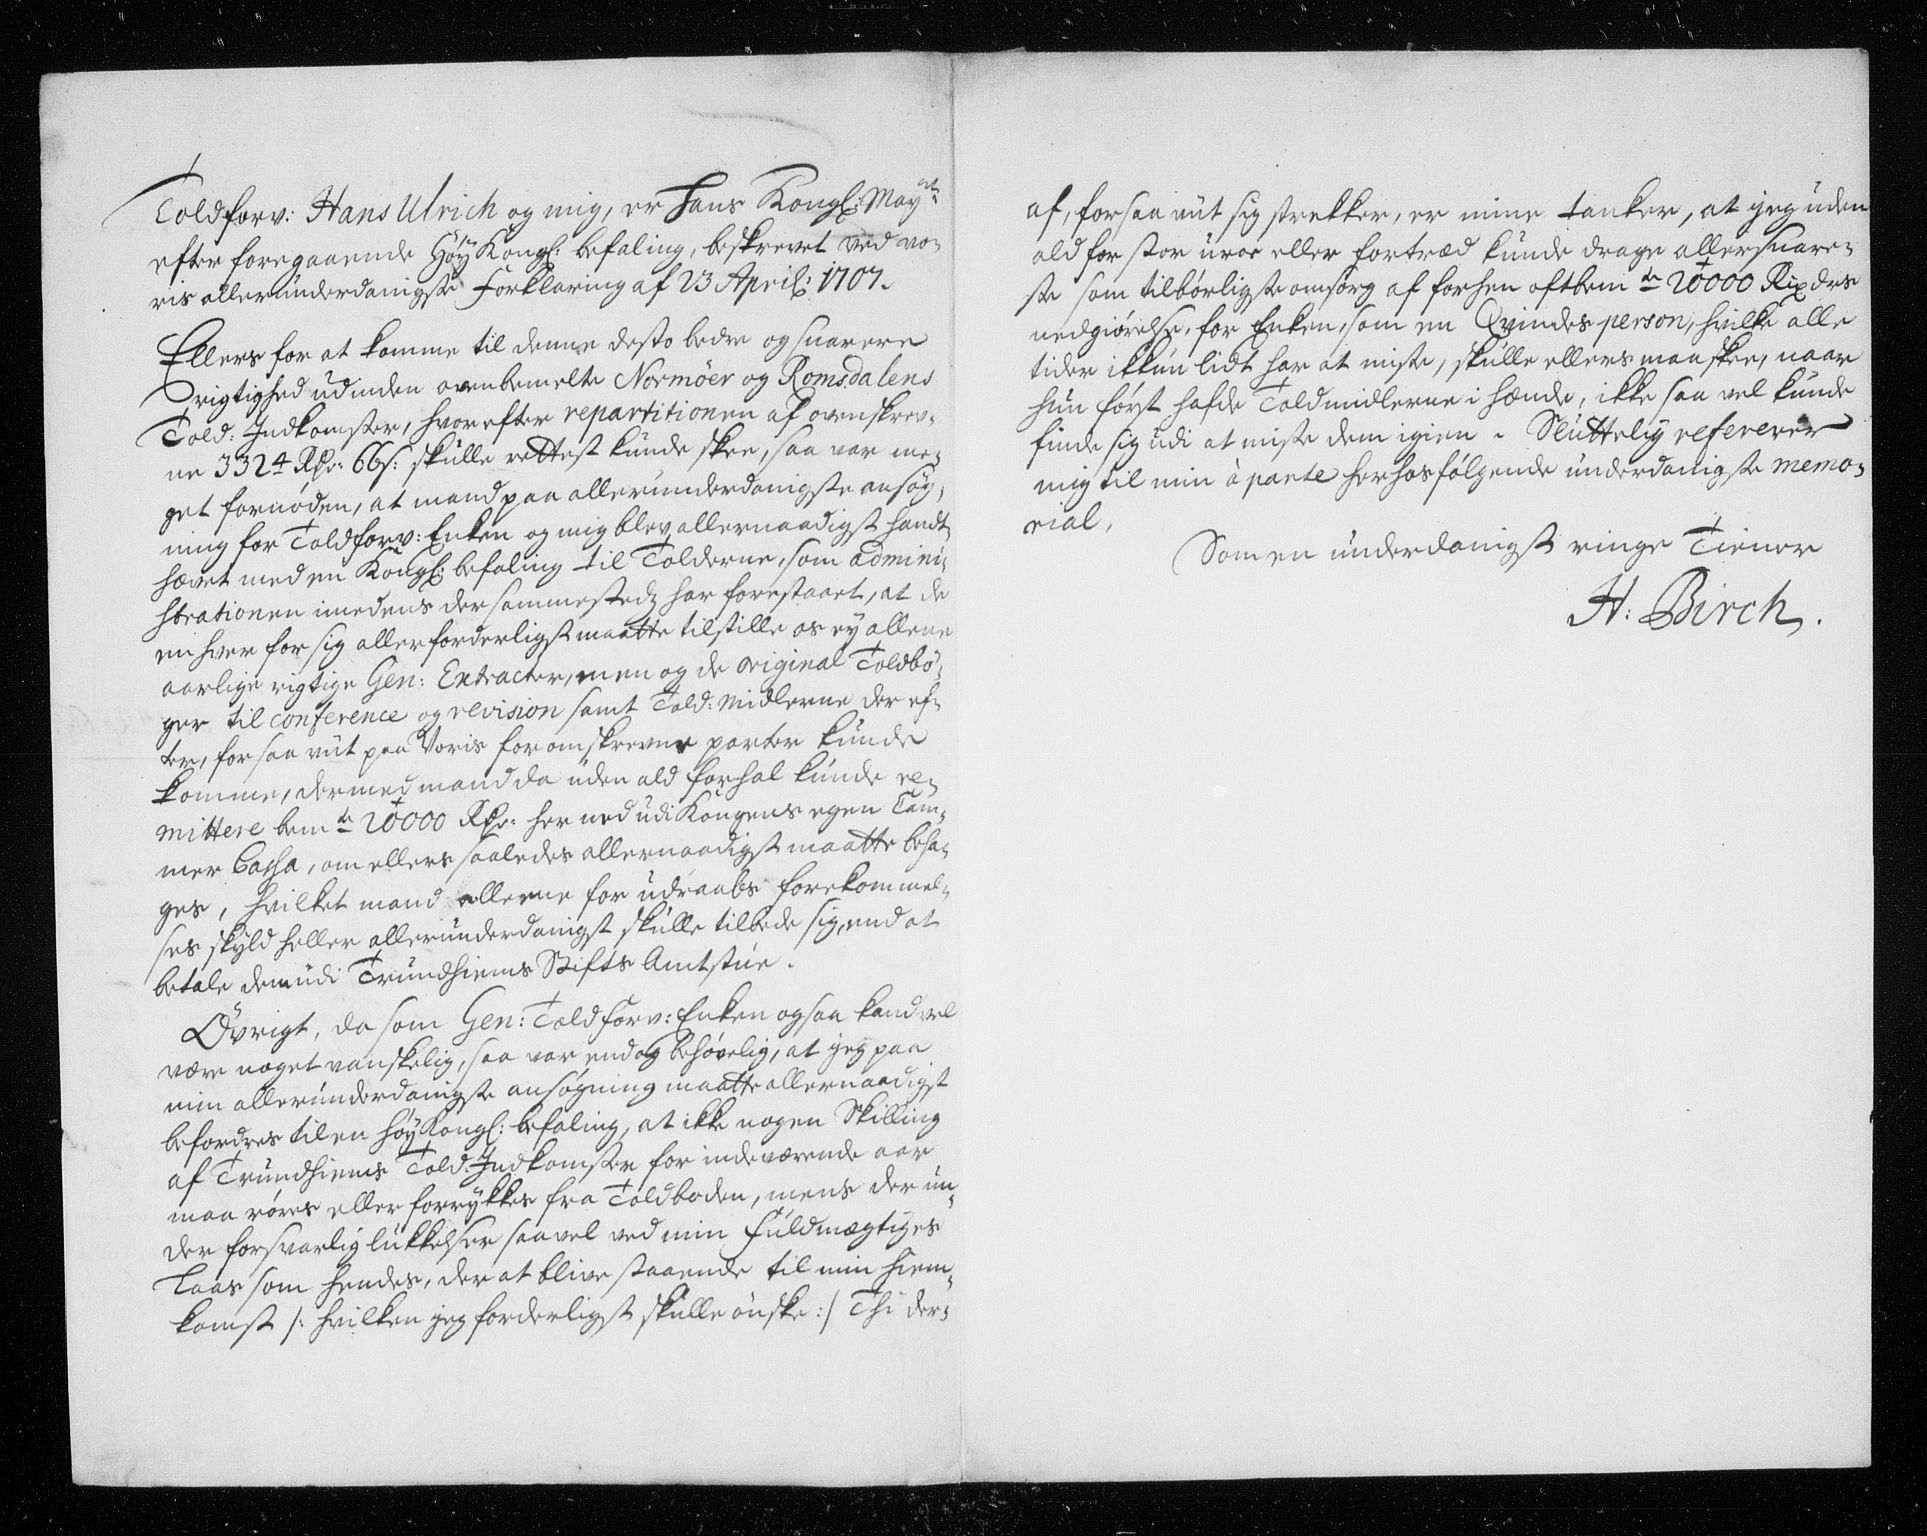 Toldforv: Hans Ulrich og mig, er Hans Kongl: Mayts
efter foregaaende Høy Kongl: befaling, beskrevet ved vo-
ris allerunderdanigste Forklaring af 23 April: 1707.
Ellers for at komme til denne desto bedre og snarere
rigtighed udinden ovenbemelte Normöer og Romsdalens
Told: Indkomster, hvorefter repartitionen af ovenskrev-
ne 3324 Rdr: 66s: skulle rettest kunde skee, saa var me-
get fornøden, at mand paa allerunderdanigste ansøg,
ning for Toldforv: Enken og mig blev allernaadigst handt
hævet med en Kongl: befaling til Tolderne, som admini-
strationen imedens der sammestedz har forestaaet, at de
en hver for sig allerforderligst maatte tilstille os ey allene
aarlige rigtige Gen: Extracter, men og de original Toldbø-
ger til conference og revision samt Told: midlerne der ef-
ter, forsaavit paa Voris foromskrevne parter kunde
komme, dermed mand da uden ald forhal kunde re-
mittere bemte 20000 Rdr: her ned udi Kongens egen Cam-
mer Cassa, om ellers saaledes allernaadigst maatte beha-
ges, hvilket mand allene for udraabs forekommel-
ses skyld heller allerunderdanigst skulle tilbede sig, end at
betale dem udi Trundhiems Stifts Amtstue.
Øvrigt, da som Gen: Toldforv: Enken ogsaa kand vel
være noget vanskelig, saa var endog behøvelig, at jeg paa
min allerunderdanigste ansøgning maatte allernaadigst
befordres til en høy Kongl: befaling, at ikke nogen Skilling
af Trundhiems Told: Indkomster for indeværende aar
maa røres eller forrykkes fra Toldboden, mens der un-
der forsvarlig lukkelser saavel ved min Fuldmægtiges
Laas som hendes, der at blive staaende til min hiem-
komst /: hvilken jeg forderligst skulle ønske :/ Thi der-
af, forsaavit sig strekker, er mine tanker, at jeg uden
ald for stor uroe eller fortræd kunde drage allersnare-
ste som tilbørligste omsorg af forhen oftbemte 20000 Rixdrs
nedgiørelse, for Enken, som en Qvindes person, hvilke alle
tider ikkun lidt har at miste, skulle ellers maa skee, naar
hun først hafde Toldmidlerne i hænde, ikke saa vel kunde
finde sig udi at miste dem igien. Sluttelig refererer
mig til min àparte herhosfølgende underdanigste memo-
rial,
Som en underdanigst ringe Tiener
H: Birch.